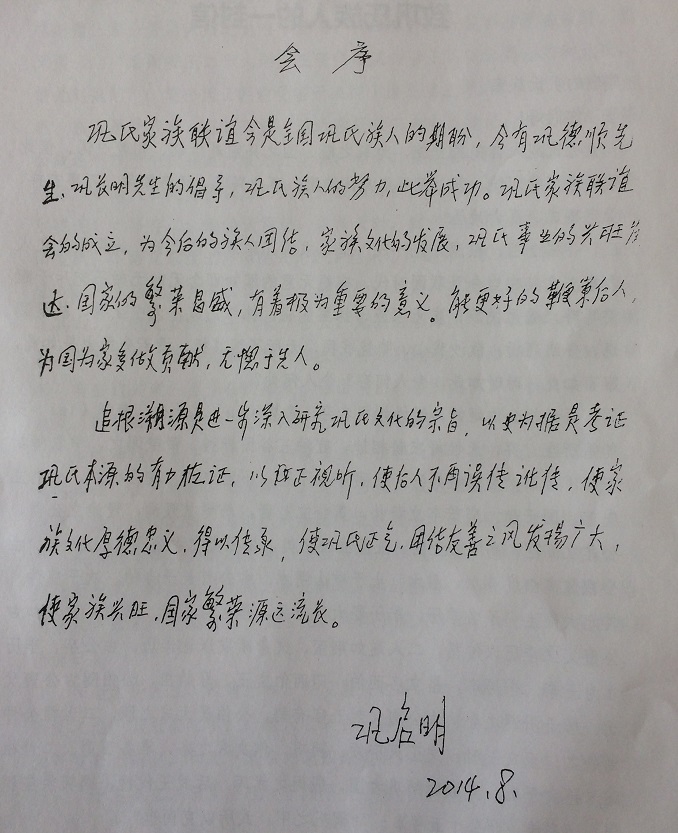 会 序
巩氏家族联谊会是全国巩氏族人的期盼，今有巩德顺先
生、巩发明先生的倡导，巩氏族人的努力，此举成功。巩氏家族联谊
会的成立，为今后的族人团结，家族文化的发展，巩氏事业的兴旺发
达，国家的繁荣昌盛，有着极为重要的意义。能更好的鞭策后人，
为国为家多做贡献，无愧于先人。
追根溯源是进一步深入研究巩氏文化的宗旨，以史为据是考证
巩氏本源的有力佐证，以纠正视听，使后人不再误传讹传，使家
族文化厚德忠义，得以传承，使巩氏正气，团结友善之风发扬广大，
使家族兴旺，国家繁荣源远流长。
巩启明
2014.8.